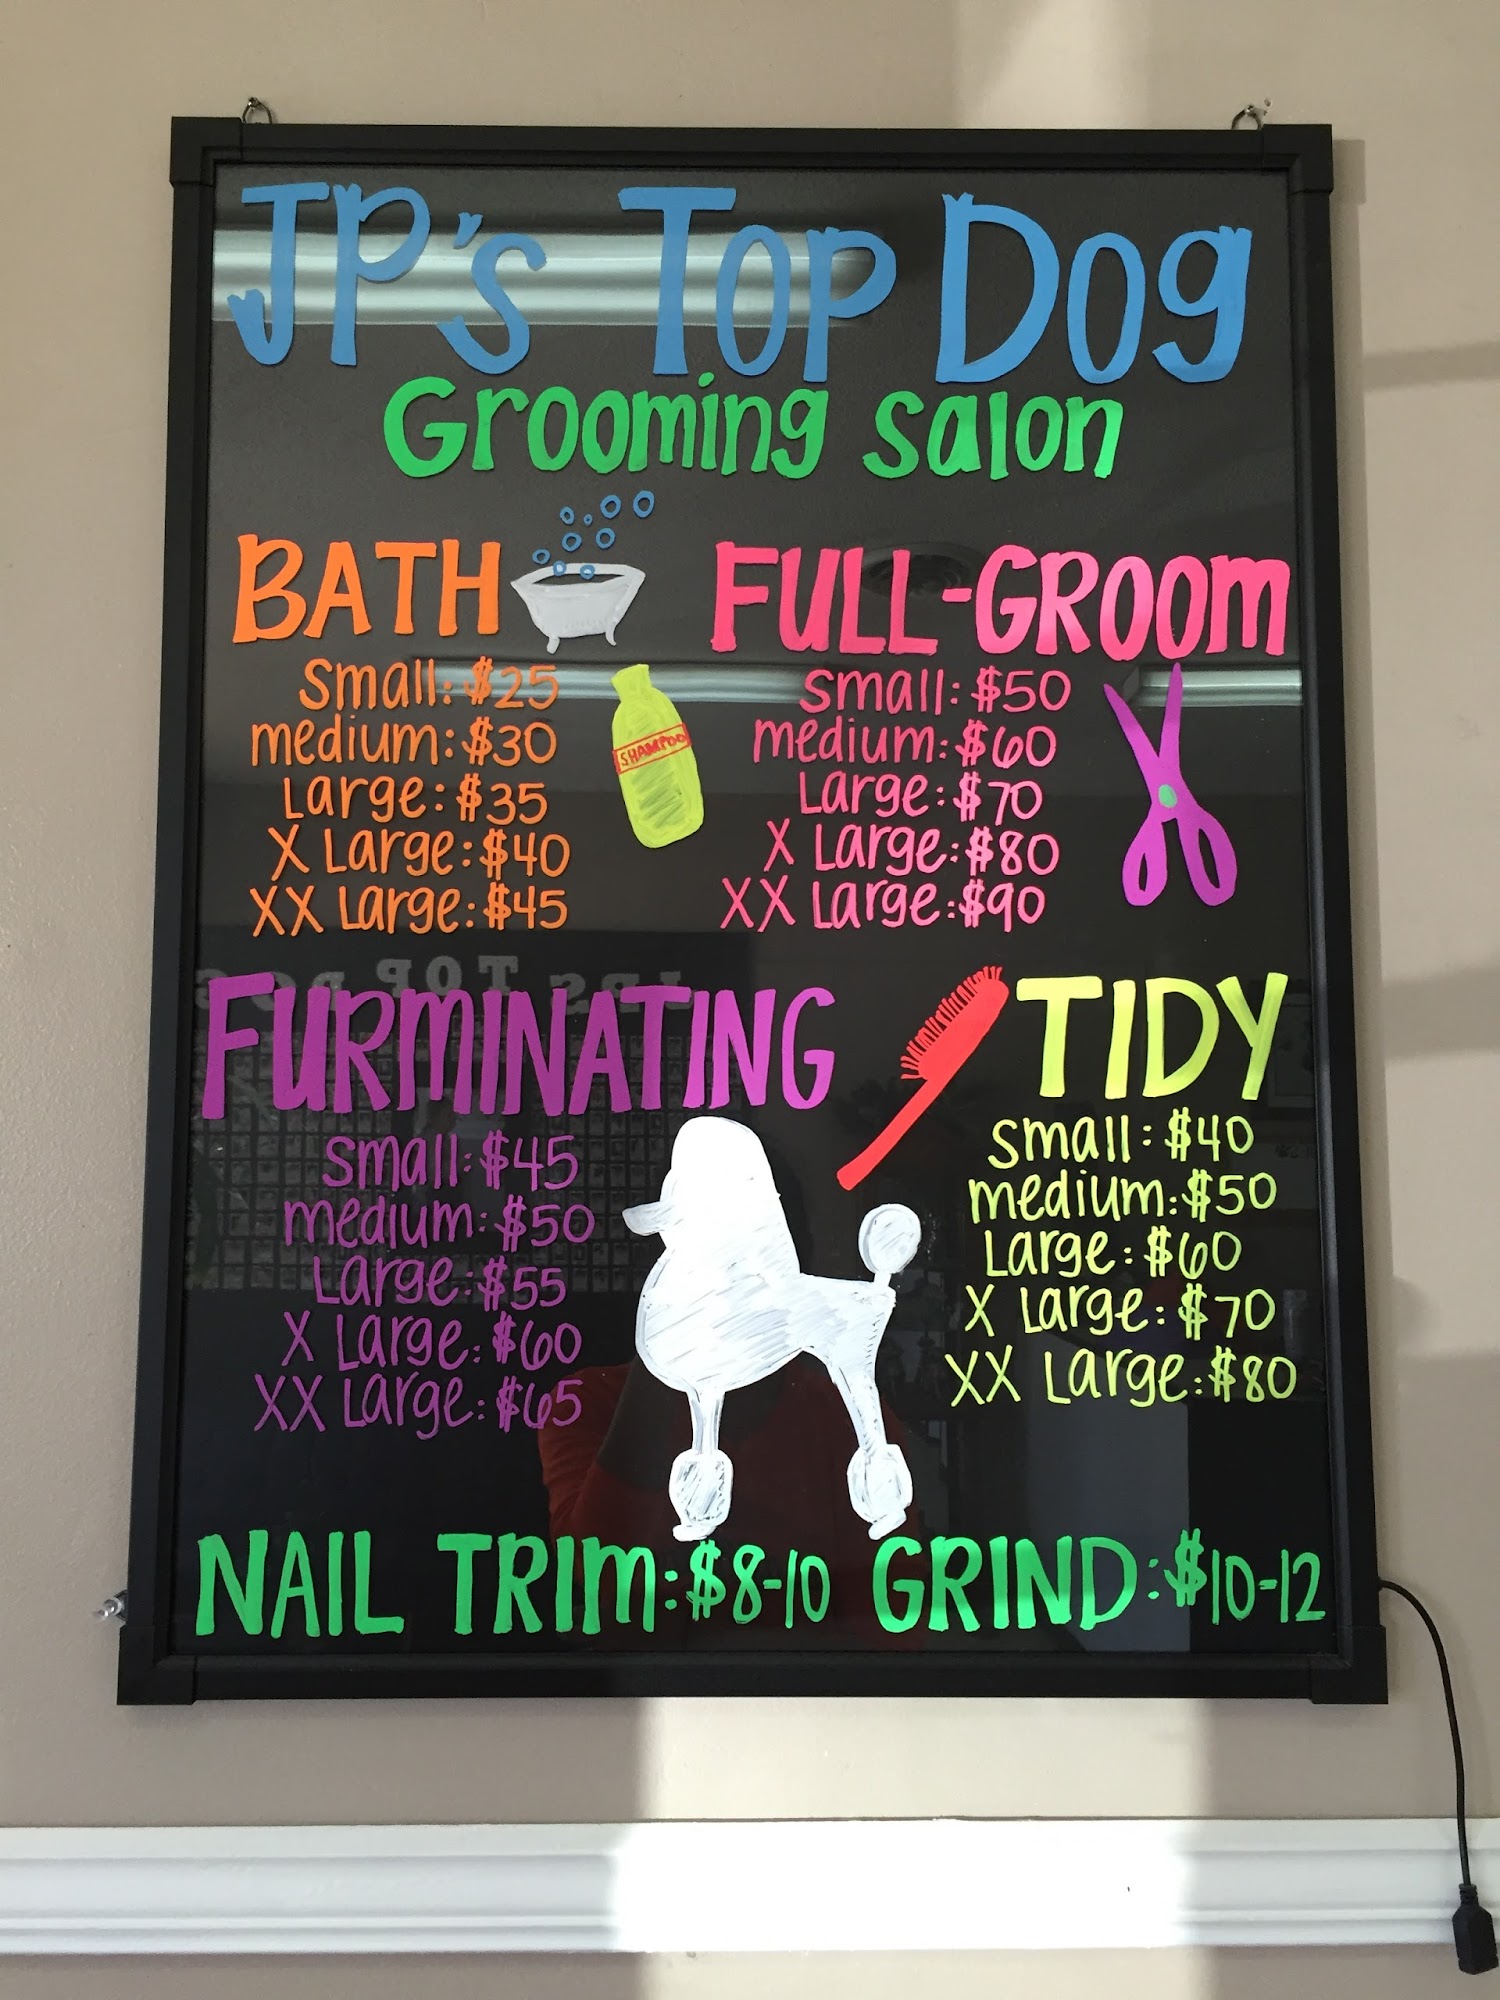 JP's Top Dog
Grooming Salon
BATH
small: $25
medium: $30
Large: $35
X Large: $40
XX Large: $45
SHAMPOO
FULL-GROOM
small: $50
medium: $60
Large: $70
X Large: $80
XX Large: $90
FURMINATING
small: $45
medium: $50
Large: $55
X Large: $60
XX Large: $65
TIDY
small: $40
medium: $50
Large: $60
X Large: $70
XX Large: $80
NAIL TRIM: $8-10 GRIND: $10-12